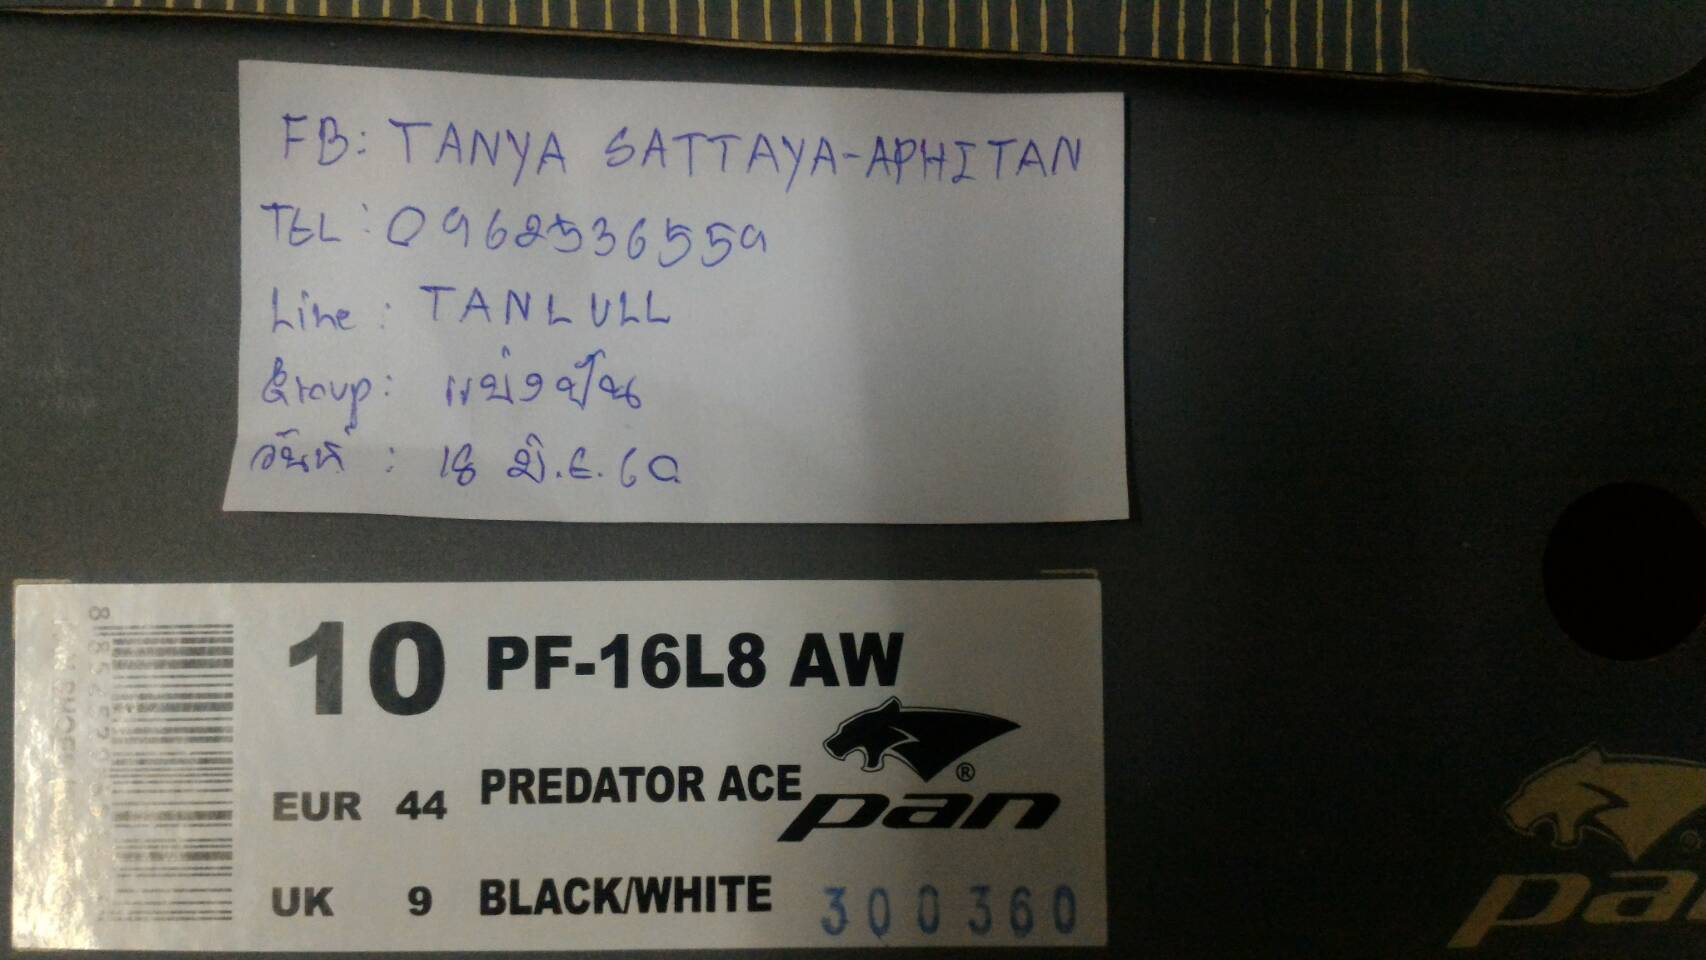 FB: TANYA SATTAYA-APHITAN
TEL: 0962536559
Line: TANLULL
Group: แบ่งปัน
วันที่ : 18 มิ.ย. 60
10 PF-16L8 AW
EUR 44 PREDATOR ACE
pan ®
UK 9 BLACK/WHITE
300360